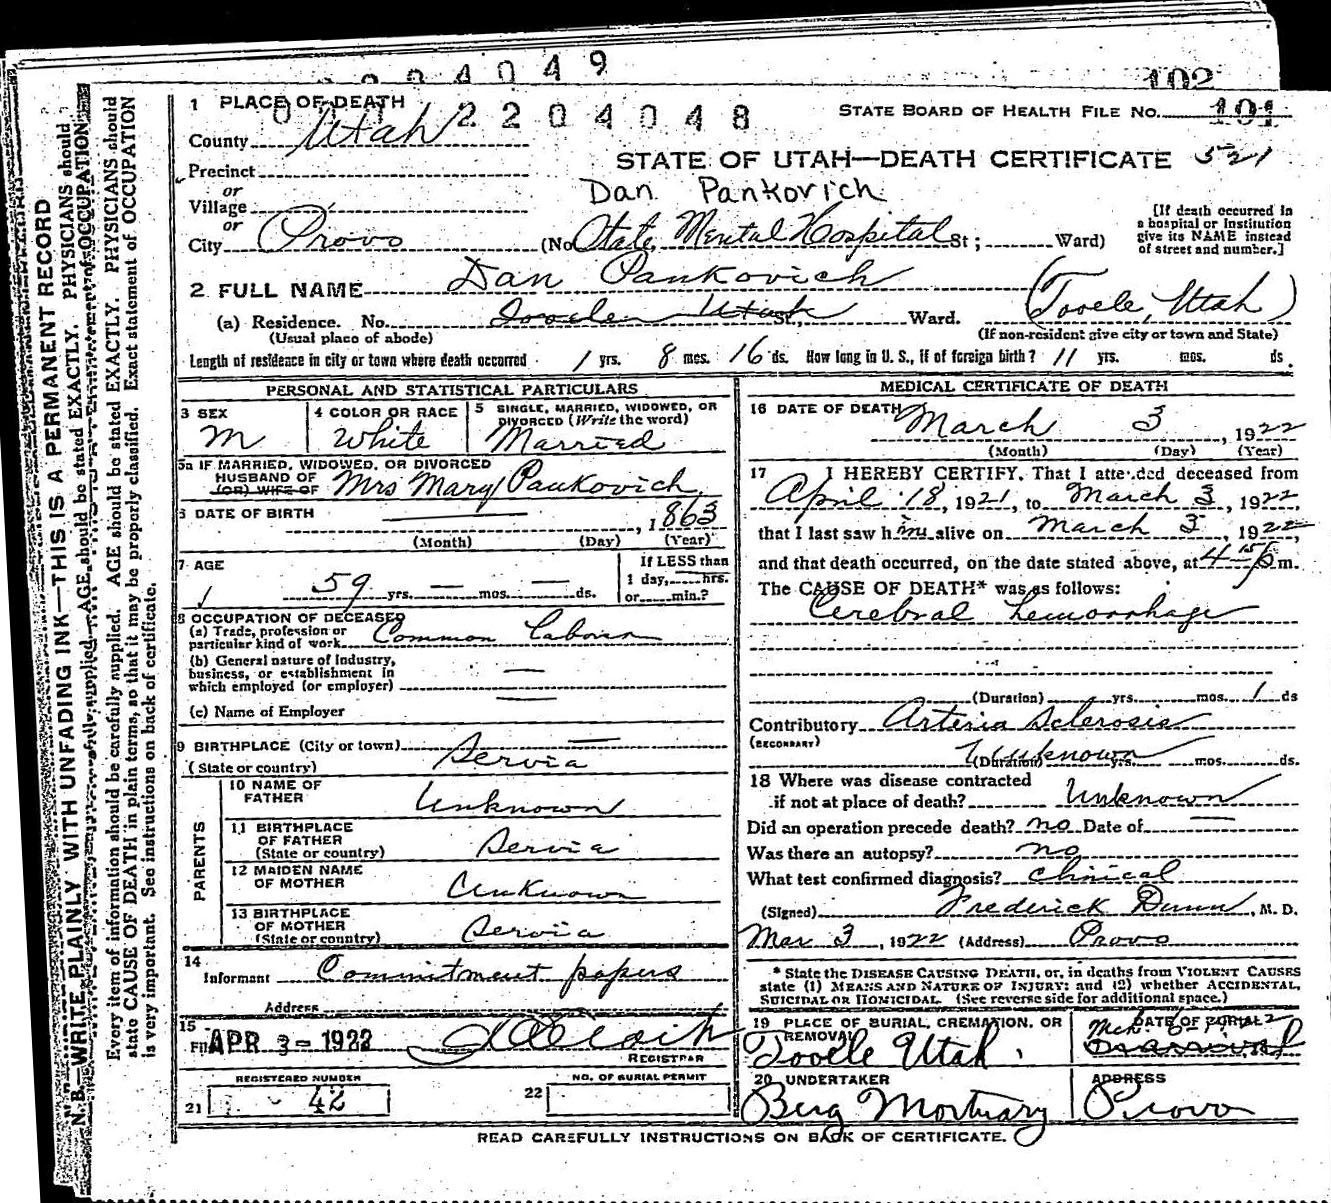 2 2 0 4 0 4 9
102
1 PLACE OF DEATH
2 2 0 4 0 4 8
STATE BOARD OF HEALTH FILE No. 101
County Utah
STATE OF UTAH—DEATH CERTIFICATE 521
Precinct
or
Dan Pankovich
Village
or
City Provo (No State Mental Hospital St ; Ward)
[If death occurred in
a hospital or institution
give its NAME instead
of street and number.]
2 FULL NAME Dan Pankovich
(a) Residence. No. Tooele Utah St., Ward. (Tooele, Utah)
(Usual place of abode) (If non-resident give city or town and State)
Length of residence in city or town where death occurred 1 yrs. 8 mos. 16 ds. How long in U. S., if of foreign birth? 11 yrs. mos. ds.
PERSONAL AND STATISTICAL PARTICULARS
3 SEX
M
4 COLOR OR RACE
White
5 SINGLE, MARRIED, WIDOWED, OR
DIVORCED (Write the word)
Married
5a IF MARRIED, WIDOWED, OR DIVORCED
HUSBAND OF
(OR) WIFE OF Mrs Mary Pankovich
6 DATE OF BIRTH
, 1863
(Month) (Day) (Year)
7 AGE
59 yrs. — mos. — ds.
If LESS than
1 day, hrs.
or min.?
8 OCCUPATION OF DECEASED
(a) Trade, profession or
particular kind of work Common Labor
(b) General nature of Industry,
business, or establishment in
which employed (or employer)
(c) Name of Employer
9 BIRTHPLACE (City or town)
(State or country) Servia
PARENTS
10 NAME OF
FATHER Unknown
11 BIRTHPLACE
OF FATHER
(State or country) Servia
12 MAIDEN NAME
OF MOTHER Unknown
13 BIRTHPLACE
OF MOTHER
(State or country) Servia
14
Informant Commitment papers
Address
15
APR 3- 1922
REGISTRAR
REGISTERED NUMBER
21 42
NO. OF BURIAL PERMIT
22
MEDICAL CERTIFICATE OF DEATH
16 DATE OF DEATH
March 3, 1922
(Month) (Day) (Year)
17 I HEREBY CERTIFY, That I attended deceased from
April 18, 1921, to March 3, 1922,
that I last saw him alive on March 3, 1922,
and that death occurred, on the date stated above, at 4 15 P m.
The CAUSE OF DEATH* was as follows:
Cerebral Hemorrhage
(Duration) yrs. mos. 1 ds
Contributory Arteria Sclerosis
(SECONDARY)
(Duration) Unknown yrs. mos. ds.
18 Where was disease contracted
if not at place of death? Unknown
Did an operation precede death? no Date of —
Was there an autopsy? no
What test confirmed diagnosis? Clinical
(Signed) Frederick Dunn, M. D.
Mar 3, 1922 (Address) Provo
* State the DISEASE CAUSING DEATH, or, in deaths from VIOLENT CAUSES
state (1) MEANS AND NATURE OF INJURY; and (2) whether ACCIDENTAL,
SUICIDAL OR HOMICIDAL. (See reverse side for additional space.)
19 PLACE OF BURIAL, CREMATION, OR
REMOVAL
Tooele Utah.
DATE OF BURIAL
20 UNDERTAKER
Berg Mortuary
ADDRESS
Provo
READ CAREFULLY INSTRUCTIONS ON BACK OF CERTIFICATE.
N. B.—WRITE PLAINLY WITH UNFADING INK—THIS IS A PERMANENT RECORD
Every item of information should be carefully supplied. AGE should be stated EXACTLY. PHYSICIANS should
state CAUSE OF DEATH in plain terms, so that it may be properly classified. Exact statement of OCCUPATION
is very important. See instructions on back of certificate.